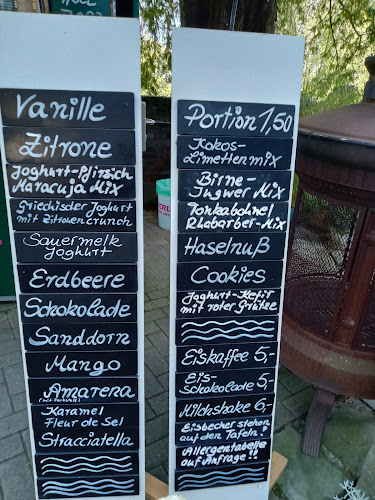 Vanille
Zitrone
Joghurt-Pfirsich
Maracuja Mix
Griechischer Joghurt
mit Zitronencrunch
Sauermelk
Joghurt
Erdbeere
Schokolade
Sanddorn
Mango
Amarena
Karamel
Fleur de Sel
Stracciatella
Portion 1,50
Kokos-
Limettenmix
Birne-
Ingwer-Mix
Tonkabohne/
Rhabarber-Mix
Haselnuß
Cookies
Joghurt-Kefir
mit roter Grütze
Eiskaffee 5,-
Eis-
Schokolade 5,-
Milchshake 6,-
Eisbecher stehen
auf den Tafeln!
Allergentabelle
auf Anfrage!!